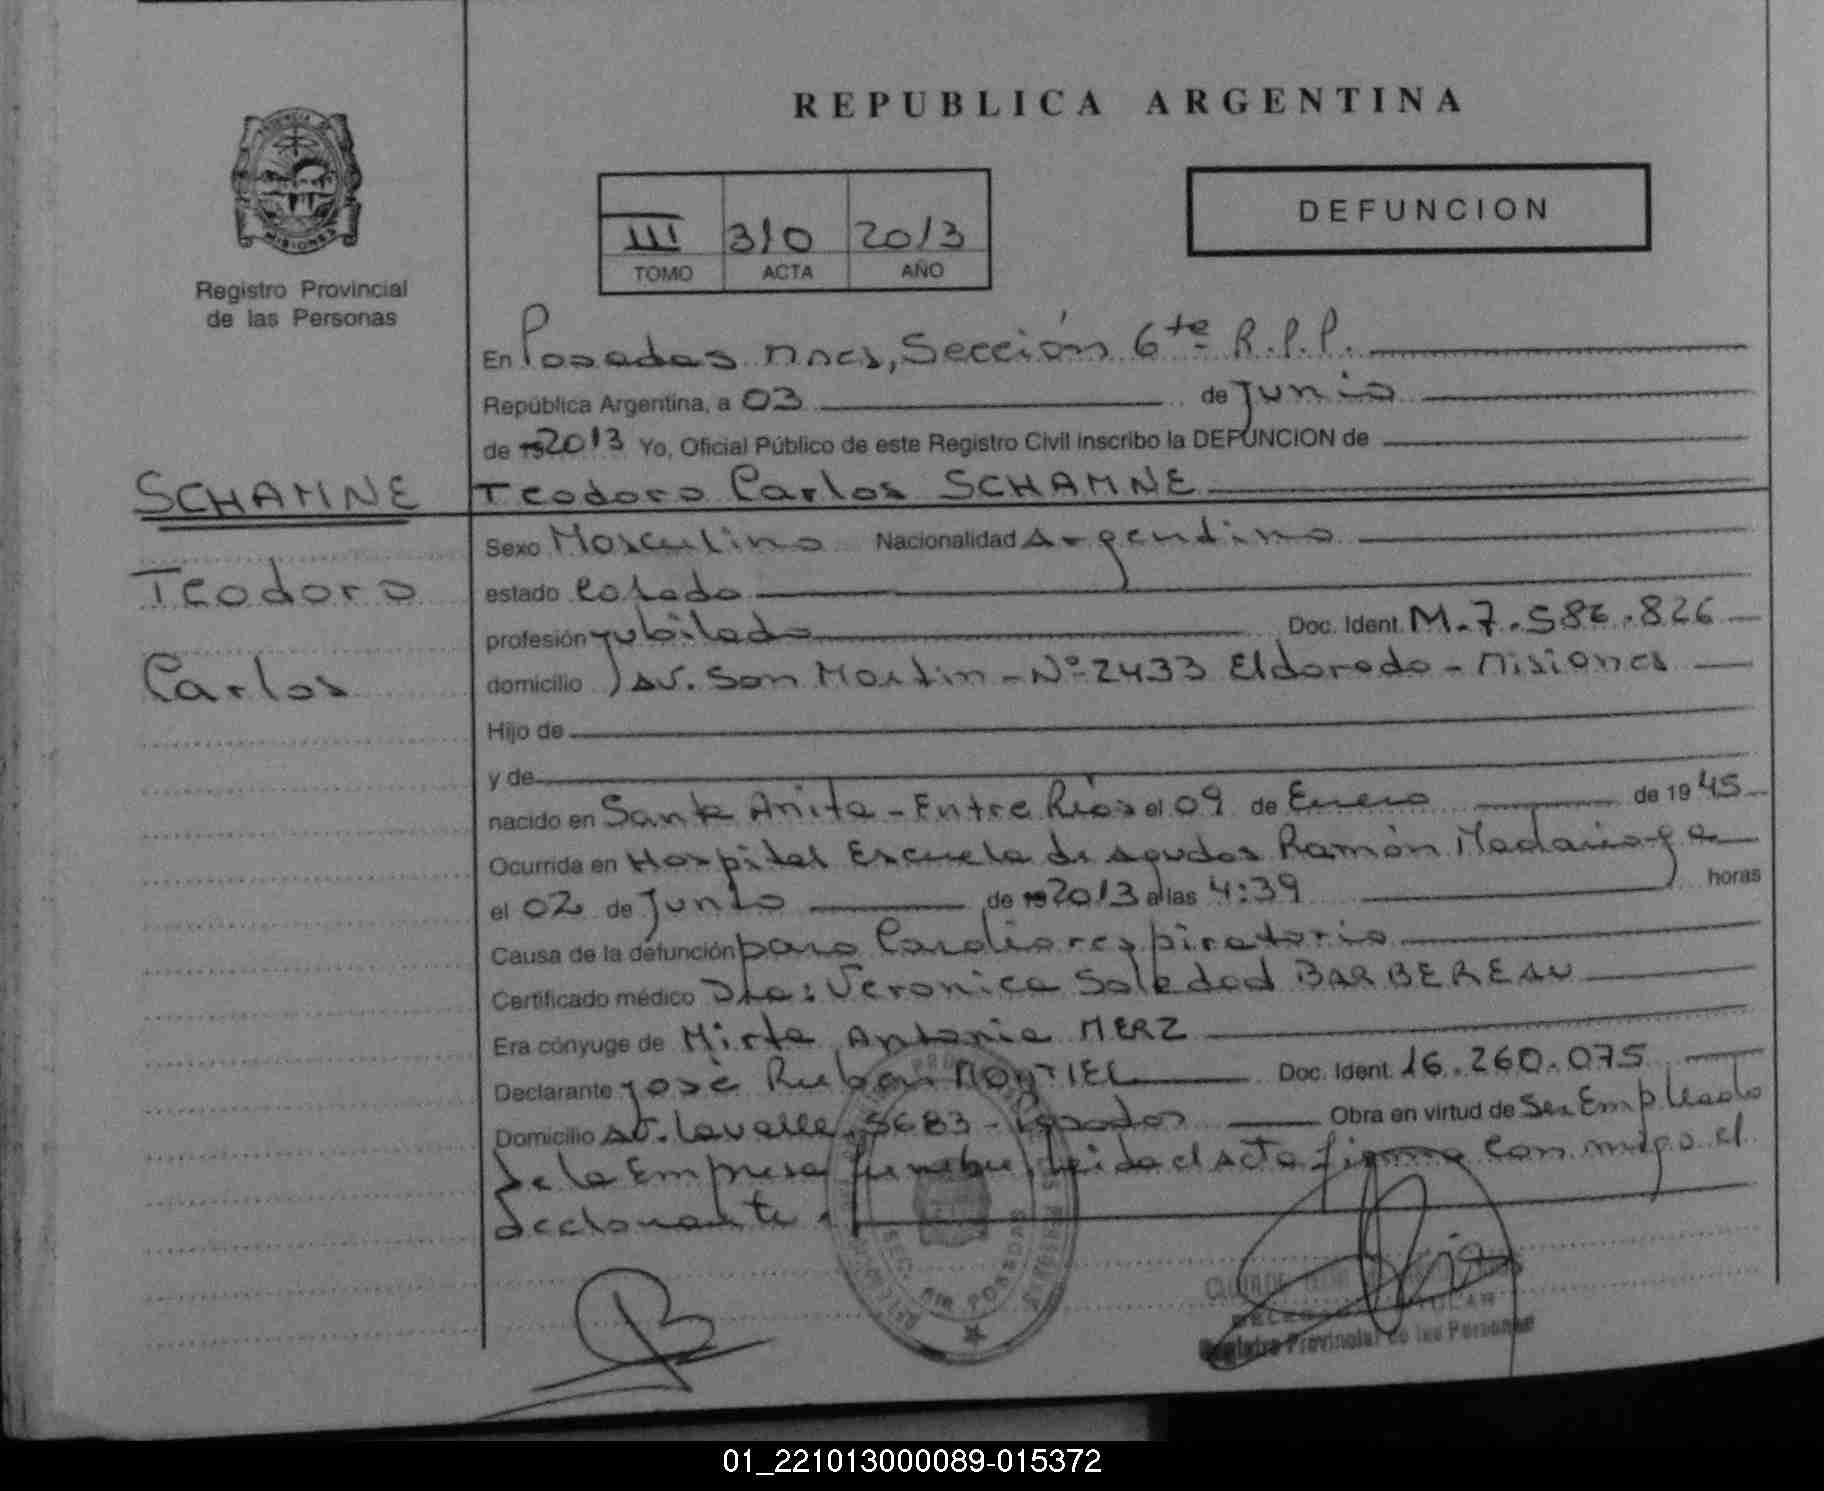 REPUBLICA ARGENTINA
DEFUNCION
III 310 2013
TOMO ACTA AÑO
MISIONES
Registro Provincial
de las Personas
En Posadas Mnes, Sección 6ta R.P.P.
República Argentina, a 03 de Junio
de 192013 Yo, Oficial Público de este Registro Civil inscribo la DEFUNCION de
SCHAMNE
Teodoro
Carlos
Teodoro Carlos SCHAMNE
Sexo Masculino Nacionalidad Argentino
estado Casado
profesión Jubilado Doc. Ident. M.7.586.826
domicilio Av. San Martin - Nº 2433 Eldorado - Misiones
Hijo de
y de
nacido en Santa Anita - Entre Ríos el 09 de Enero de 1945
Ocurrida en Hospital Escuela de Agudos Ramón Madariaga
el 02 de Junio de 192013 a las 4:39 horas
Causa de la defunción paro Cardiorespiratorio
Certificado médico Dra: Veronica Soledad BARBEREAU
Era cónyuge de Mirta Antonia MERZ
Declarante José Ruben MONTIEL Doc. Ident. 16.260.075
Domicilio Av. Lavalle 5683 - Posadas Obra en virtud de Ser Empleado
de la Empresa funebre, leida el acta firma con migo el
declarante.
SEC. 6TA POSADAS
TITULAR
Registro Provincial de las Personas
01_221013000089-015372